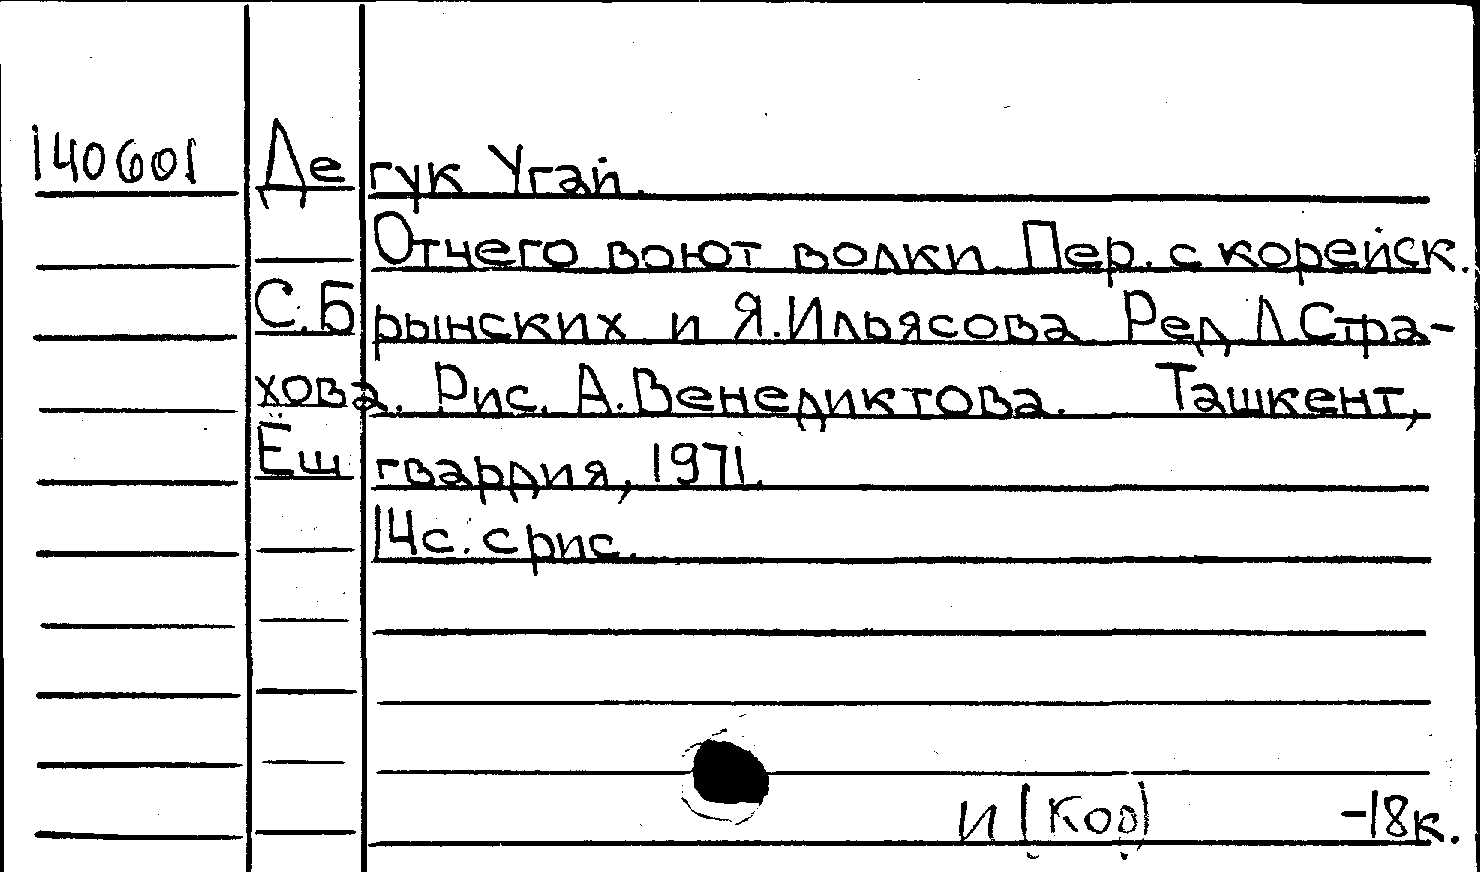 140601 Дегук Угай.
Отчего воют волки. Пер. с корейск.
С.Брынских и Я.Ильясова. Ред Л.Стра-
хова. Рис. А.Венедиктова. Ташкент,
Ёш гвардия, 1971.
14с. с рис.
И(Кор) -18к.